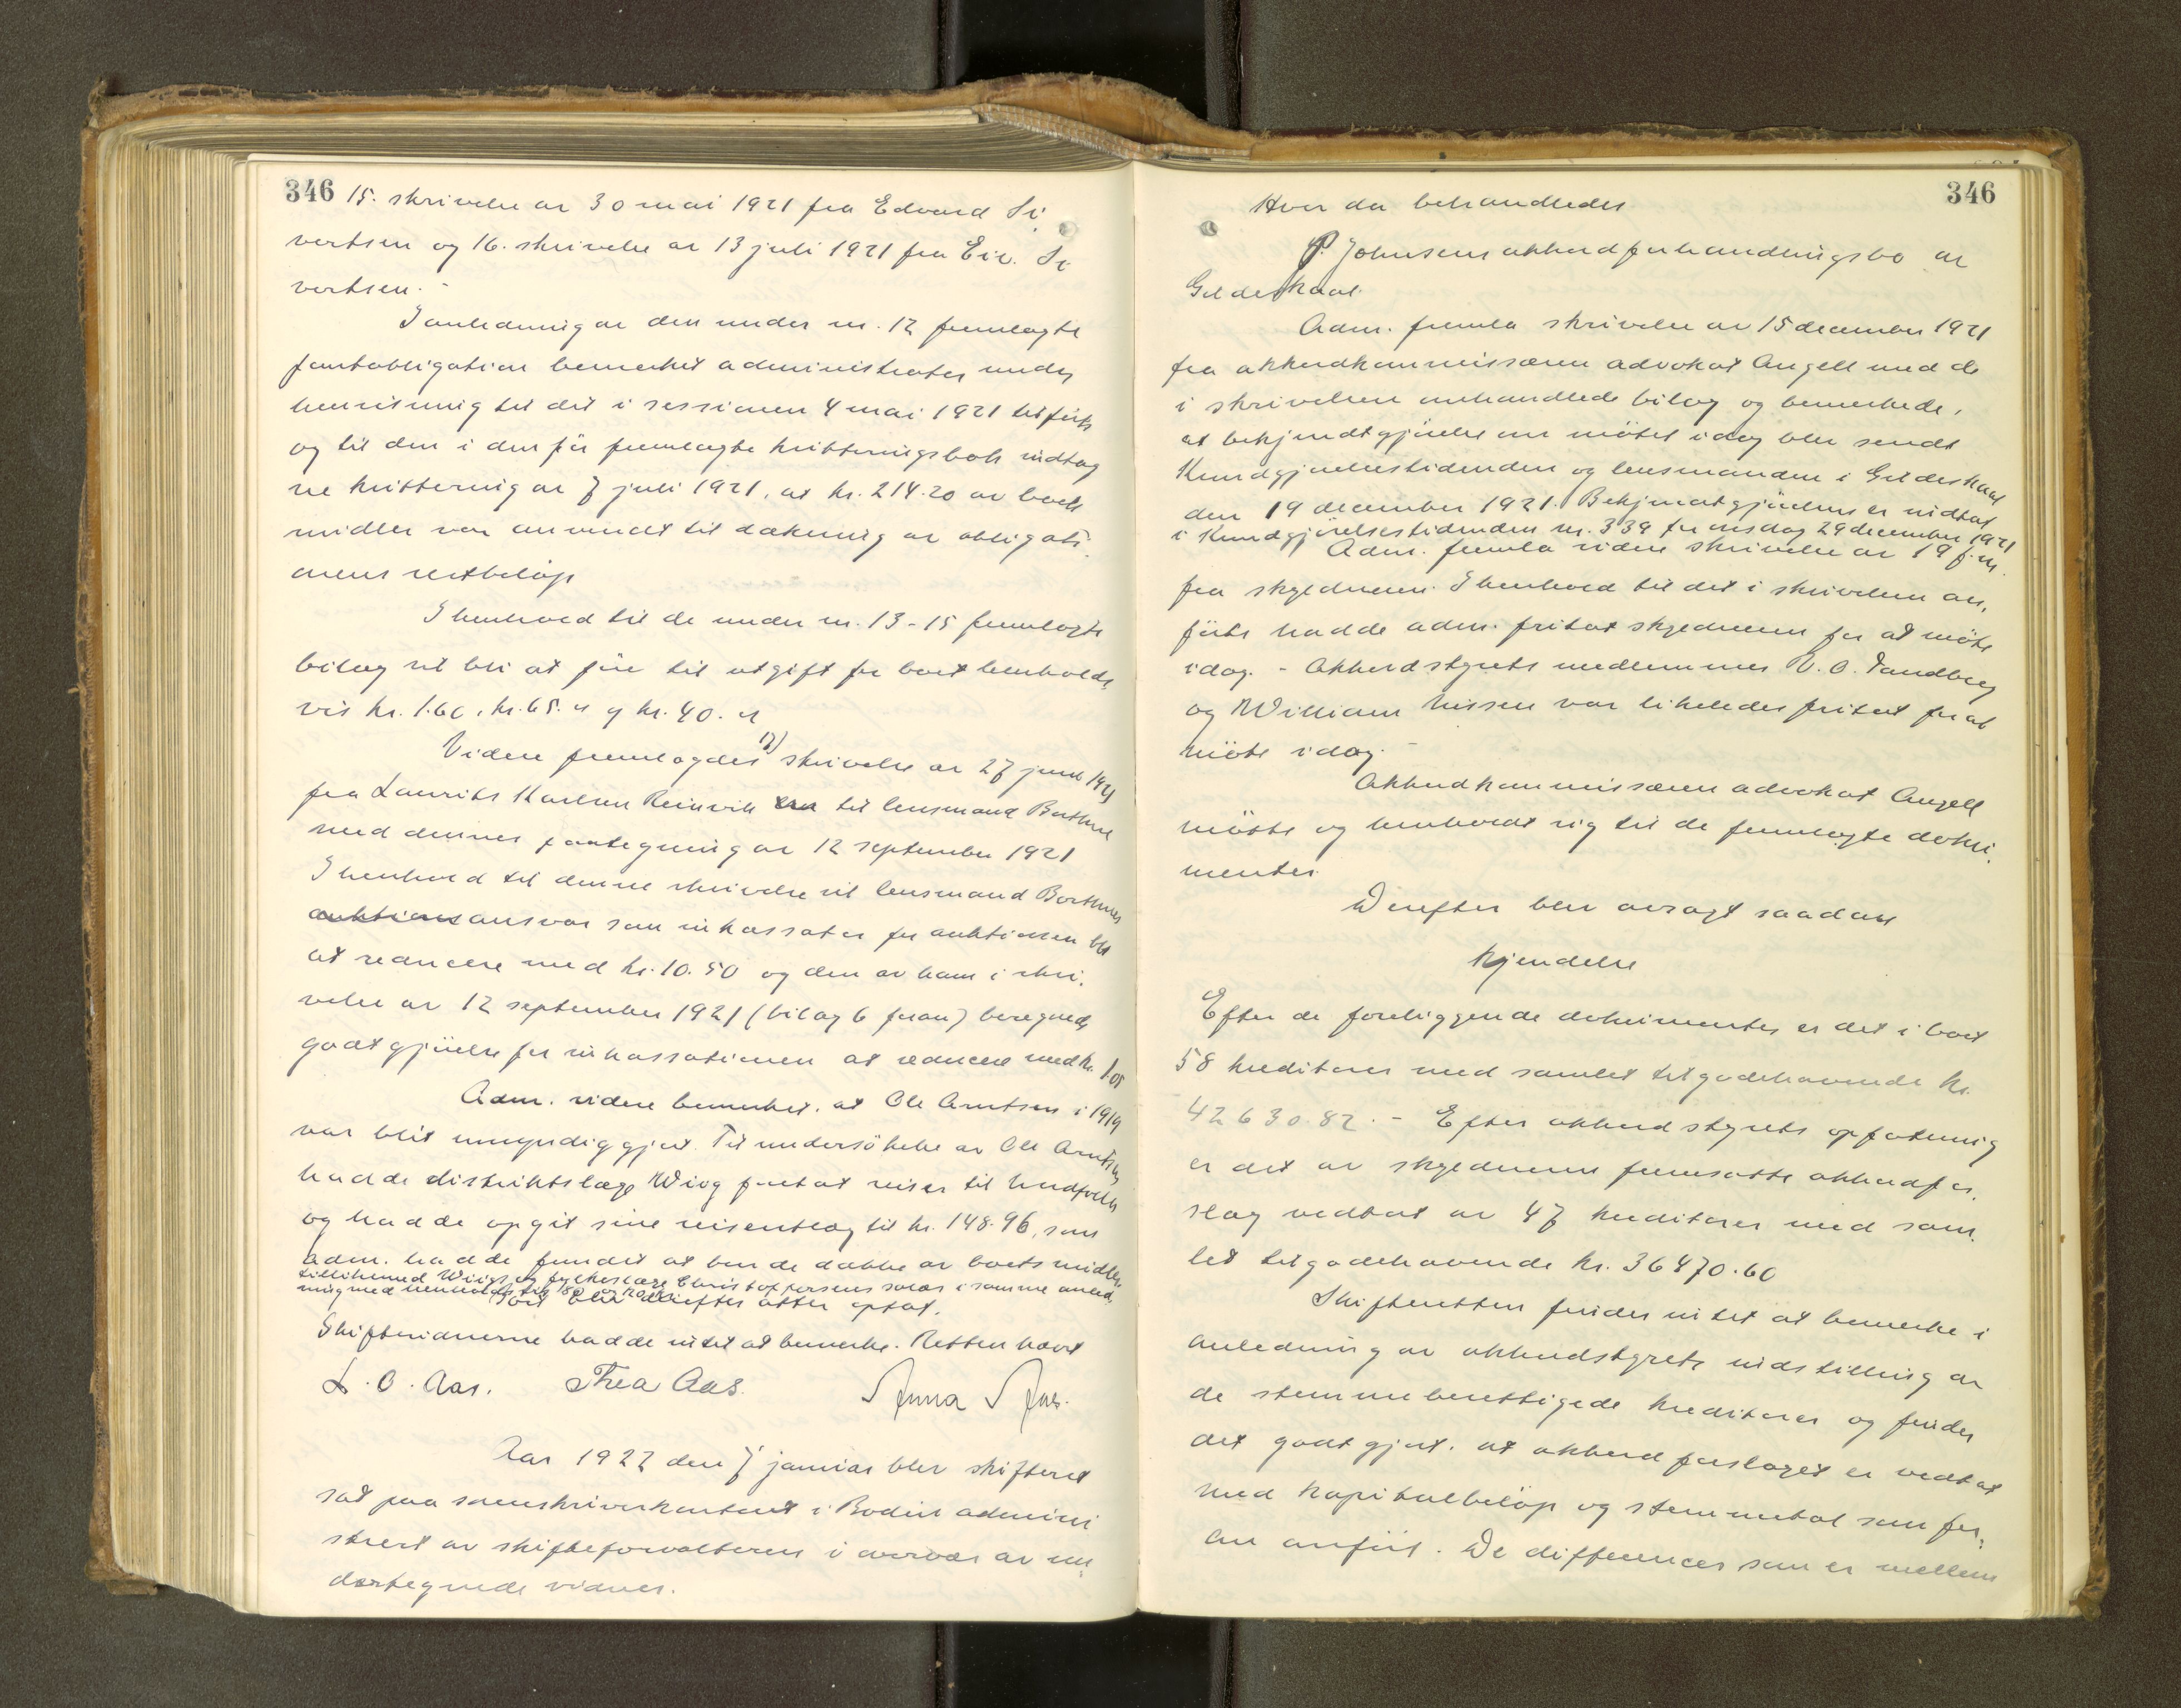 346 15. skrivelse av 30 mai 1921 fra Edvard Si-
vertsen og 16. skrivelse av 13 juli 1921 fra Eiv. Si
vertsen. -
I anledning av den under nr. 12 fremlagte
pantobligation bemerket administrator under
henvisning til det i sessionen 4 mai 1921 tilførte
og til den i den før fremlagte kvitteringsbok indtag
ne kvittering av 7 juli 1921, at kr. 214.20 av boets
midler var anvendt til dækning av obligati-
onens restbeløp
I henhold til de under nr. 13-15 fremlagte
bilag vil bli at føre til utgift for boet henholds
vis kr. 1.60, kr. 65. og kr. 40.
Videre fremlagdes 17) skrivelse av 27 juni 1921
fra Laurits Karlsen Reinvik til lensmand Borthne
med dennes paategning av 12 september 1921
I henhold til denne skrivelse vil lensmand Borthnes
auktions ansvar som inkassator for auktionen bli
at reducere med kr. 10.50 og den av ham i skri-
velse av 12 september 1921 (bilag 6 foran) beregnede
godtgjørelse for inkassationen at reducere med kr. 1.05
Adm. videre bemerket, at Ole Arntsen i 1919
var blit umyndiggjort. Til undersøkelse av Ole Arntsen
hadde distriktslæge Wiig foretat reiser til
og hadde opgit sine reiseutlæg til kr. 148.96, som
adm. hadde fundet at burde dække av boets midler,
tillikemed Wiigs og fylkeslæge Christoffersens salær i samme anled-
ning med henholdsvis
Boet blev derefter atter optat.
Skiftevidnerne hadde intet at bemerke. Retten hævet
L. O. Aas. Thea Aas. Anna Aas.
Aar 1922 den 7 januar blev skifteret
sat paa sorenskriverkontoret i Bodin admini
strert av skifteforvalteren i overvær av un-
dertegnede vidner.
346
Hvor da behandledes
P. Johnsens akkordforhandlingsbo av
Gildeskaal.
Adm. fremla skrivelse av 15 december 1921
fra akkordkommissæren advokat Angell med de
i skrivelsen omhandlede bilag og bemerkede,
at bekjendtgjørelse om møtet idag blev sendt
Kundgjørelsestidenden og lensmanden i Gildeskaal
den 19 december 1921. Bekjendtgjørelsen er indtat
i Kundgjørelsestidenden nr. 339 for onsdag 29 december 1921
Adm. fremla videre skrivelse av 19 f.m.
fra skyldneren. I henhold til det i skrivelsen an-
førte hadde adm. fritat skyldneren for at møte
idag. - Akkordstyrets medlemmer V. O. Sandberg
og William Nissen var likeledes fritat for at
møte idag. -
Akkordkommissæren advokat Angell
møtte og henholdt sig til de fremlagte doku-
menter.
Derefter blev avsagt saadan
kjendelse
Efter de foreliggende dokumenter er det i boet
58 kreditorer med samlet tilgodehavende kr.
42630.82. - Efter akkordstyrets opfatning
er det av skyldneren fremsatte akkordfor-
slag vedtat av 47 kreditorer med sam-
let tilgodehavende kr. 36470.60
Skifteretten finder intet at bemerke i
anledning av akkordstyrets indstilling av
de stemmeberettigede kreditorer og finder
det godtgjort, at akkordforslaget er vedtat
med kapitalbeløp og stemmetal som for-
an anført. De differencer som er mellem